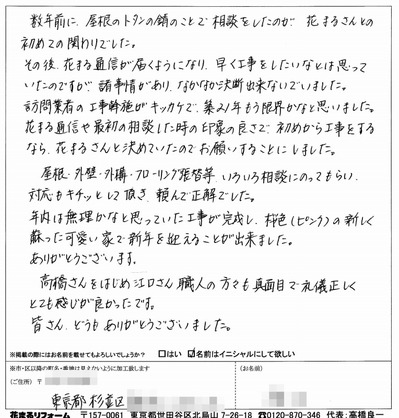 数年前に、屋根のトタンの錆のことで相談をしたのが、花まるさんとの
初めての関わりでした。
その後、花まる通信が届くようになり、早く工事をしたいなとは思って
いたのですが、諸事情があり、なかなか決断出来ないでいました。
訪問業者の工事がキッカケで、築21年もう限界かなと思いました。
花まる通信や最初の相談した時の印象の良さで、初めから工事をする
なら、花まるさんと決めていたのでお願いすることにしました。
屋根・外壁・外構・フローリング張替等、いろいろ相談にのってもらい、
対応もキチッとして頂き、頼んで正解でした。
年内は無理かなと思っていた工事が完成し、桜色(ピンク)の新しく
蘇った可愛い家で新年を迎えることが出来ました。
ありがとうございます。
高橋さんをはじめ江口さん、職人の方々も真面目で礼儀正しく
とても感じが良かったです。
皆さん、どうもありがとうございました。
※掲載の際にはお名前を載せてもよろしいでしょうか? □はい ☑名前はイニシャルにして欲しい
※市・区以降の町名・番地は見えないように加工致します
(ご住所) 〒
(お名前)
東京都杉並区
花まるリフォーム 〒157-0061 東京都世田谷区北烏山7-26-18 ☎0120-870-346 代表:高橋良一